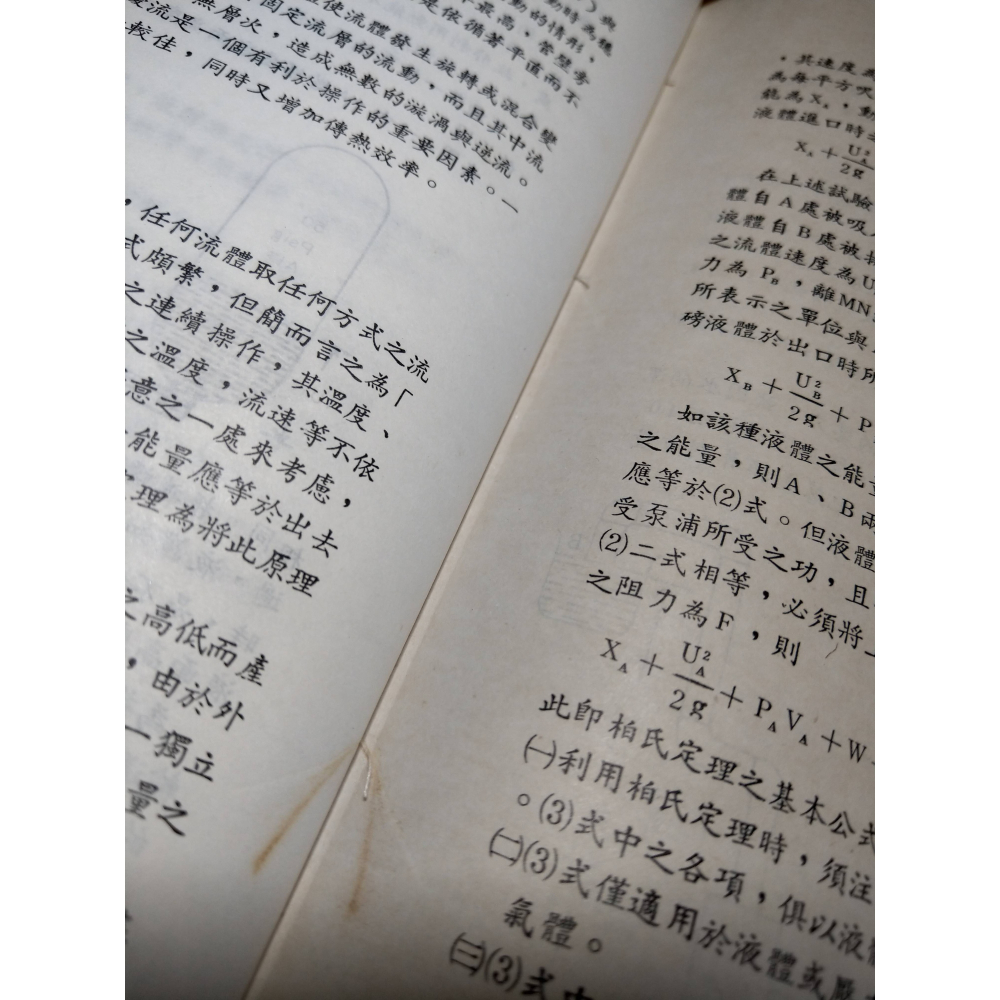 動時為穩
動的情形，
年最高、管壁旁
是依循著平直而不
使流體發生旋轉或混合變
固定流層的流動，而且其中流
無層次，造成無數的漩渦與逆流。
流是一個有利於操作的重要因素。一
較佳，同時又增加傳熱效率。
，任何流體取任何方式之流
式頗繁，但簡而言之為「
之連續操作，其溫度、
之溫度，流速等不依
意之一處來考慮，
能量應等於出去
理為將此原理
之高低而產
，由於外
一獨立
量之
，其速度為
為每平方呎
能為X，動
液體進口時
X_A + U_A^2/2g
在上述試驗
體自A處被吸
液體自B處被
之流體速度為U
力為P_B，離MN
所表示之單位與
磅液體於出口時所
X_B + U_B^2/2g + P
如該種液體之能
之能量，則A、B兩
應等於(2)式。但液體
受泵浦所受之功，且
(2)二式相等，必須將
之阻力為F，則
X_A + U_A^2/2g + P_A V_A + W
此即柏氏定理之基本公式
㈠利用柏氏定理時，須注
。(3)式中之各項，俱以液
㈡(3)式僅適用於液體或
氣體。
㈢(3)式中